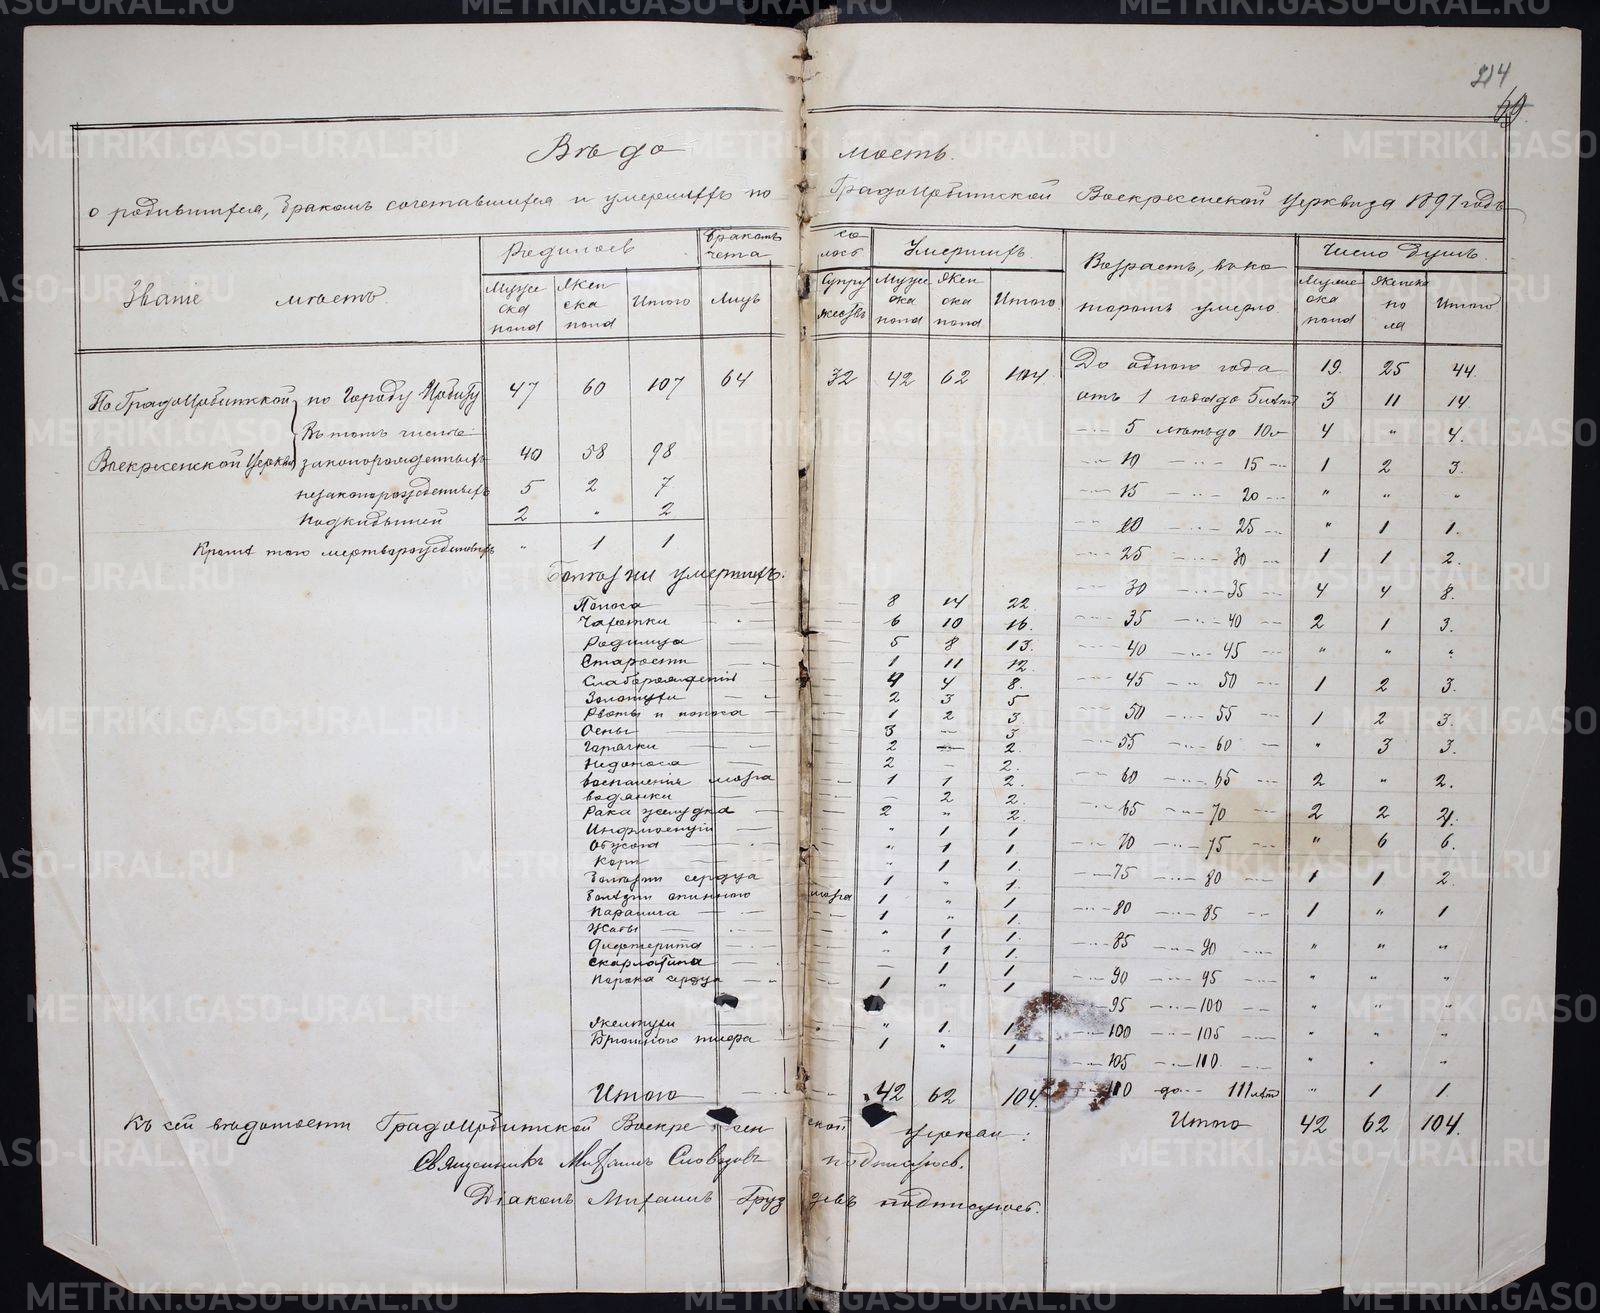 214
Вѣдомость
о родившихся, бракомъ сочетавшихся и умершихъ по Градо Ирбитской Воскресенской церкви за 1897 годъ
Званіе мѣстъ. Родилось Бракомъ сочеталось Умершихъ Возрастъ, въ которомъ умерло Число душъ.
Мужеска пола Женска пола Итого Лицъ Супружествъ Мужеска пола Женска пола Итого Мужеска пола Женска пола Итого
По Градо Ирбитской Воскресенской Церкви
по городу Ирбиту 47 60 107 64 32 42 62 104
Въ томъ числѣ:
законорожденныхъ 40 58 98
незаконорожденныхъ 5 2 7
Подкидышей 2 " 2
Кромѣ того мертворожденныхъ " 1 1
До одного года 19. 25 44.
отъ 1 года до 5 лѣтъ 3 11 14.
5 лѣтъ до 10 4 " 4.
10 15 1 2 3.
15 20 " " "
20 25 " 1 1.
25 30 1 1 2.
30 35 4 4 8.
35 40 2 1 3.
40 45 " " "
45 50 1 2 3.
50 55 1 2 3.
55 60 " 3 3.
60 65 2 " 2.
65 70 2 2 4.
70 75 " 6 6.
75 80 1 1 2.
80 85 1 " 1
85 90 " " "
90 95 " " "
95 100 " " "
100 105 " " "
105 110 " " "
110 до 111 лѣтъ " 1 1.
Итого 42 62 104.
Болѣзни умершихъ:
Поноса 8 14 22.
Чахотки 6 10 16.
Родимца 5 8 13.
Старости 1 11 12.
Слаборожденія 4 4 8.
Золотухи 2 3 5
Рвоты и поноса 1 2 3.
Оспы 3 — 3
Горячки 2 — 2.
Недоноса 2 — 2.
Воспаленія мозга 1 1 2.
Водянки — 2 2.
Рака желудка 2 " 2.
Инфлюенціи " 1 1
Обжога " 1 1.
Кори " 1 1.
Болѣзни сердца 1 " 1.
Болѣзни спинного мозга 1 " 1
Паралича 1 " 1.
Жабы " 1 1.
Дифтерита " 1 1.
Скарлатина — 1 1.
Порока сердца 1 " 1
Желтухи " 1. 1
Брюшного тифа 1 " 1
Итого 42 62 104.
Къ сей вѣдомости Градо Ирбитской Воскресенской церкви:
Священникъ Михаилъ Словцовъ подписуюсь.
Діаконъ Михаилъ Груздевъ подписуюсь.
METRIKI.GASO-URAL.RU